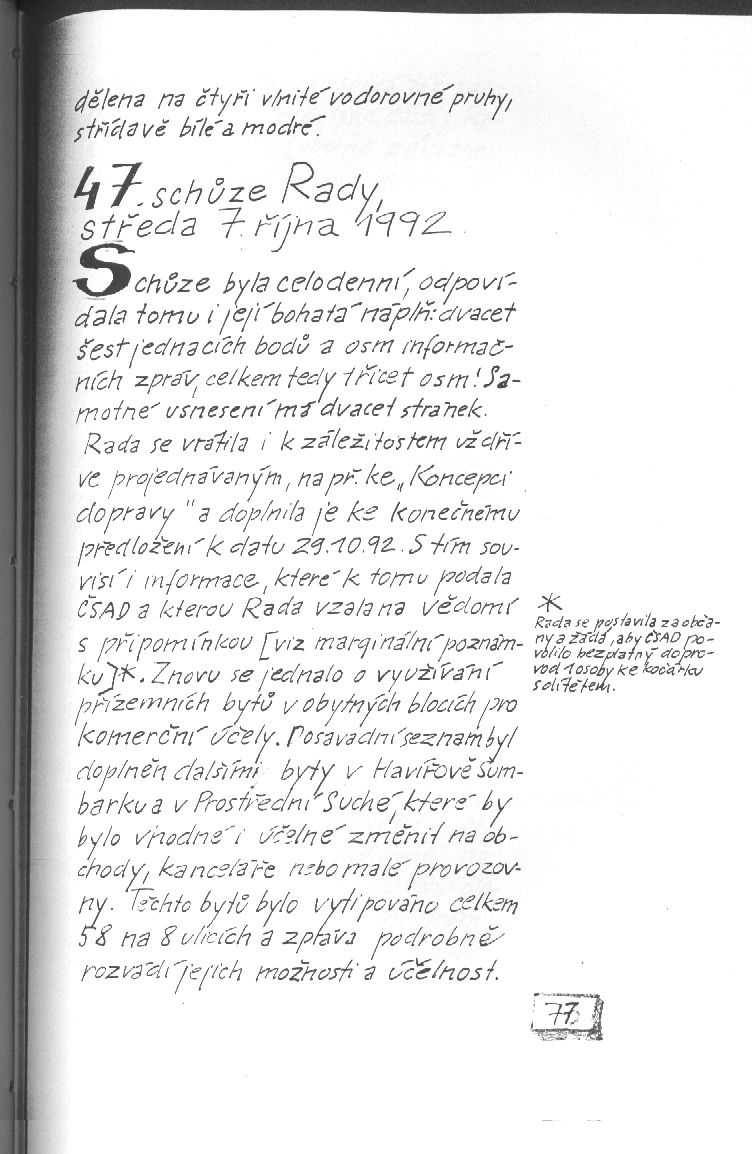 dělena na čtyři vlnité vodorovné pruhy,
střídavě bílé a modré.
47. schůze Rady,
středa 7. října 1992
Schůze byla celodenní, odpoví-
dala tomu i její bohatá náplň: dvacet
šest jednacích bodů a osm informač-
ních zpráv, celkem tedy třicet osm! Sa-
motné usnesení má dvacet stránek.
Rada se vrátila i k záležitostem už dří-
ve projednávaným, např. ke „Koncepci
dopravy" a doplnila je ke konečnému
předložení k datu 29.10.92. S tím sou-
visí i informace, které k tomu podala
ČSAD a kterou Rada vzala na vědomí
s připomínkou [viz marginální poznám-
ku]*. Znovu se jednalo o využívání
přízemních bytů v obytných blocích pro
komerční účely. Dosavadní seznam byl
doplněn dalšími byty v Havířově Šum-
barku a v Prostřední Suché, které by
bylo vhodné i účelné změnit na ob-
chody, kanceláře nebo malé provozov-
ny. Těchto bytů bylo vytipováno celkem
58 na 8 ulicích a zpráva podrobně
rozvádí jejich možnosti a účelnost.
*
Rada se postavila za obča-
ny a žádá, aby ČSAD po-
volilo bezplatný dopro-
vod 1 osoby ke kočárku
s dítětem.